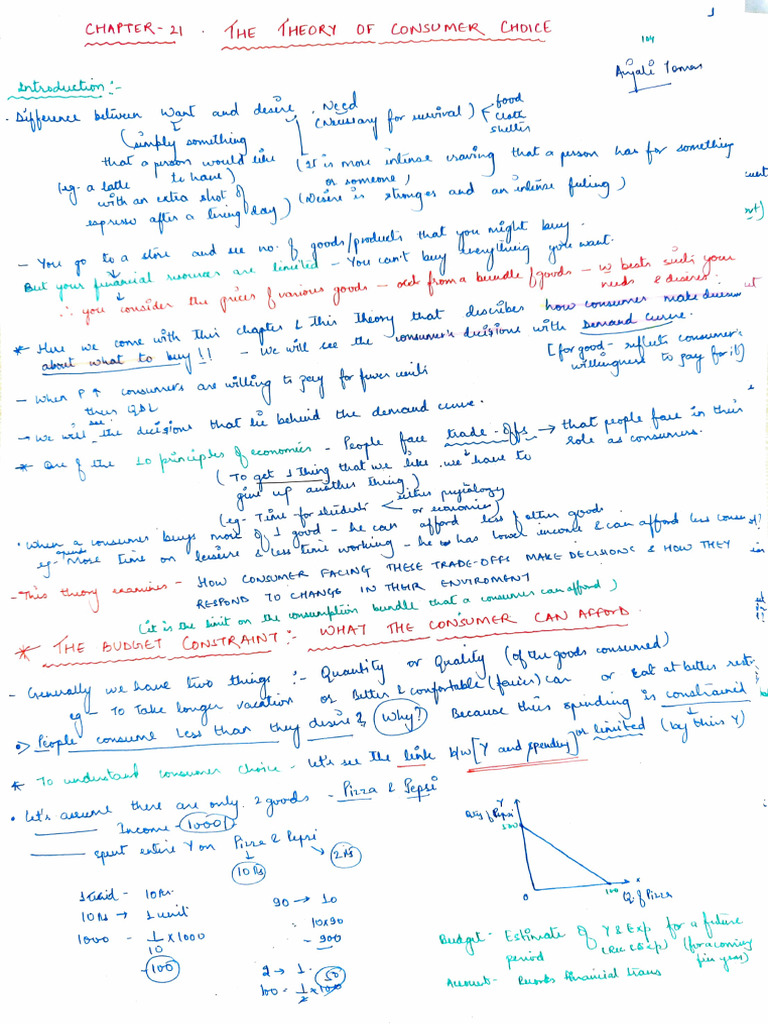 CHAPTER-21. THE THEORY OF CONSUMER CHOICE
1
104
Anjali Tomar
Introduction:-
. Difference between Want and desire. Need
(Necessary for survival)
food
cloth
shelter
(simply something
that a person would like
to have)
(eg- a latte
with an extra shot of
espresso after a tiring day)
(It is more intense craving that a person has for something
or someone)
(Desire is stronger and an intense feeling)
- You go to a store and see no. of goods/products that you might buy.
But your financial resources are limited - You can't buy everything you want.
∴ you consider the prices of various goods - and from a bundle of goods - w bests suits your
needs & desires.
* Here we come with this chapter & this theory that describes how consumer make decision
about what to buy!! - We will see the consumer's decisions with Demand curve.
[for good- reflects consumer's
willingness to pay for it]
- When P ↑ consumers are willing to pay for fewer units
thus QD↓
→ We will see the decisions that lie behind the demand curve.
* One of the 10 principles of economics - People face trade-offs → that people face in their
role as consumers.
(To get 1 thing that we like we have to
give up another thing)
(eg- Time - for students
either psychology
or economics)
. When a consumer buys more of 1 good - he can afford less of other goods
eg- More time on leisure & less time working - he has lower income & can afford less
spent
- This theory examines - HOW CONSUMER FACING THESE TRADE-OFFS MAKE DECISIONS & HOW THEY
RESPOND TO CHANGE IN THEIR ENVIROMENT
(it is the limit on the consumption bundle that a consumer can afford)
* THE BUDGET CONSTRAINT:- WHAT THE CONSUMER CAN AFFORD
- Generally we have two things :- Quantity or Quality (of the goods consumed)
eg- To take longer vacation or Better & comfortable (fancier) car or Eat at better
People consume less than they desire & Why? Because their spending is constrained
or limited (by their Y)
* To understand consumer choice - Let's see the link b/w [Y and spending]
• Let's assume there are only 2 goods - Pizza & Pepsi
Income - 1000/-
spent entire Y on Pizza & Pepsi
10 Rs
2 Rs
1 unit - 10 Rs.
10 Rs → 1 unit
1000 - 1/10 x 1000
- 100
90 → 10
10x90
- 900
2 → 1.
50
100 - 1/2 x 100
Y
Qty of Pepsi
500
0
100
x
Q. of Pizza
Budget - Estimate of Y & Exp for a future
period (Rec & Exp) (for a coming
fin year)
Account - Records financial trans